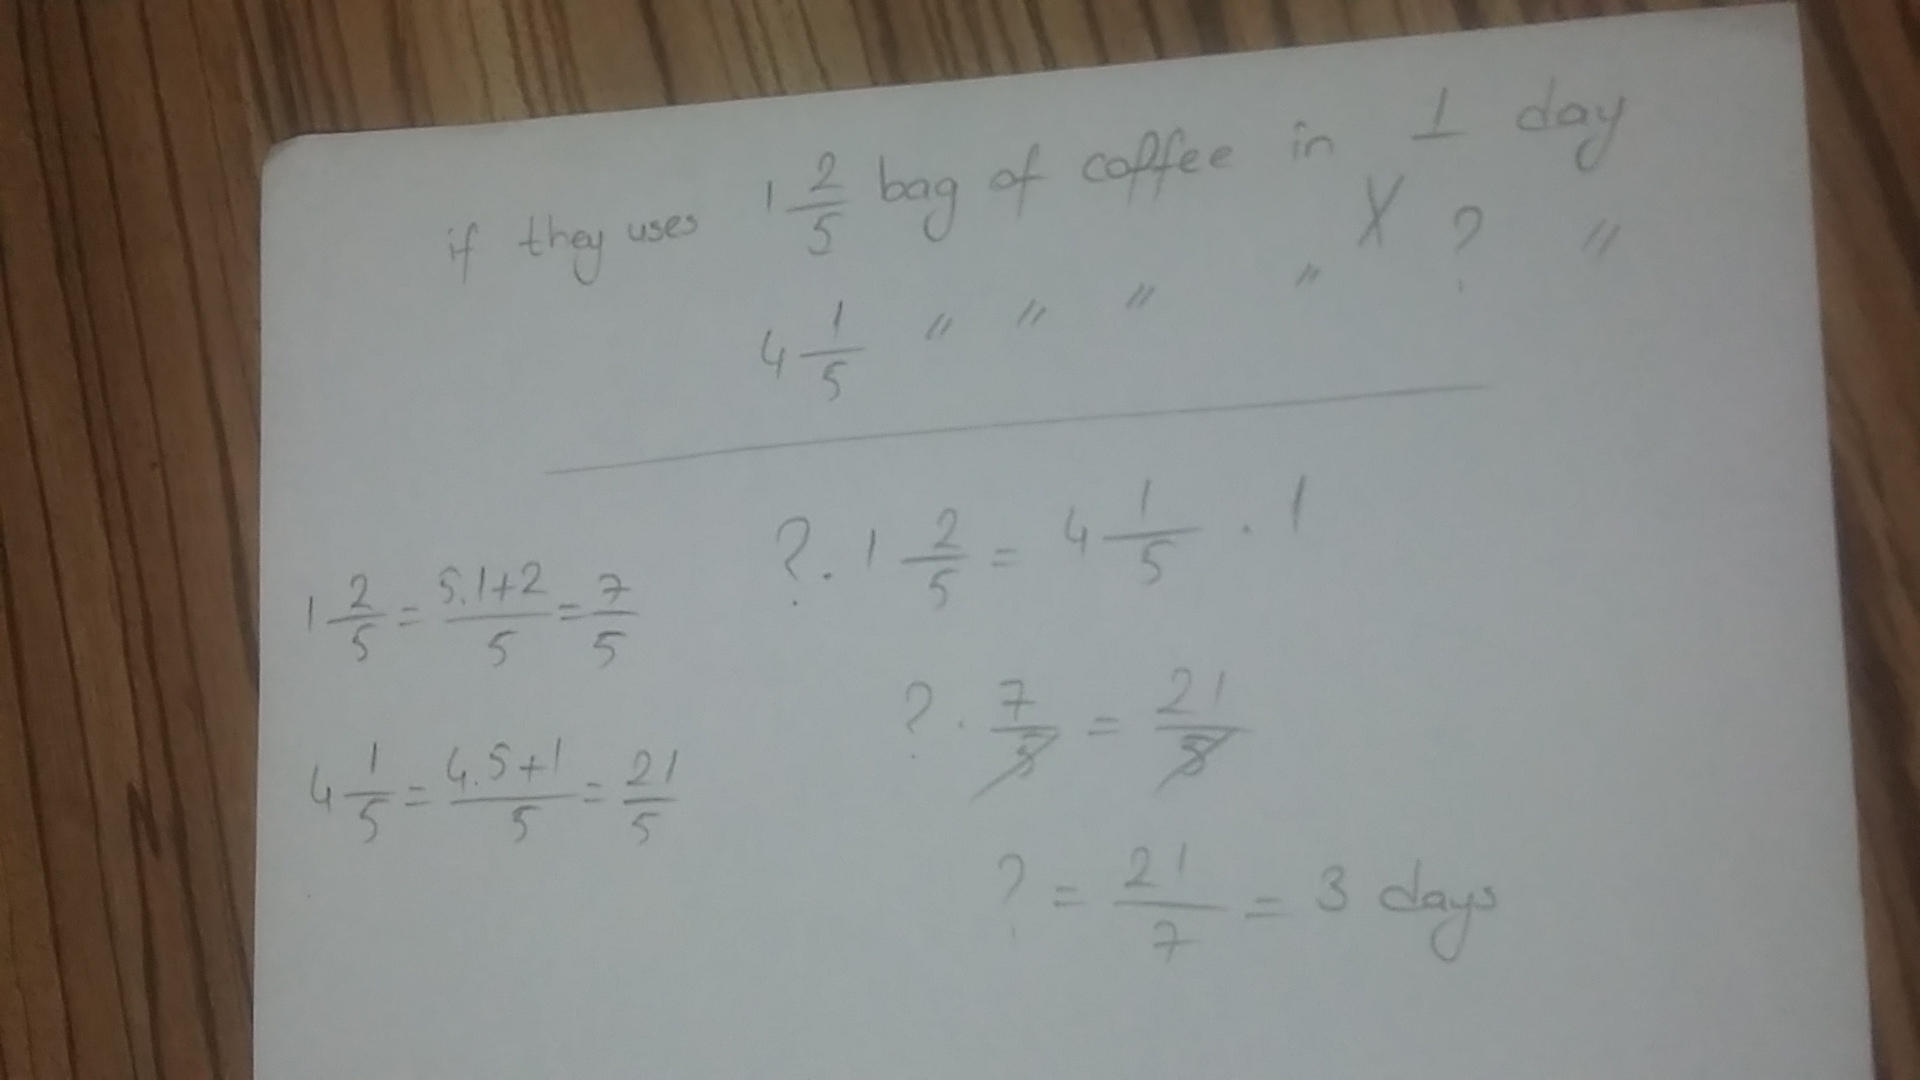 if they uses 1 2/5 bag of coffee in 1 day
4 1/5 " " " " X ? "
? . 1 2/5 = 4 1/5 . 1
1 2/5 = 5.1+2/5 = 7/5
? . 7/5 = 21/5
4 1/5 = 4.5+1/5 = 21/5
? = 21/7 = 3 days